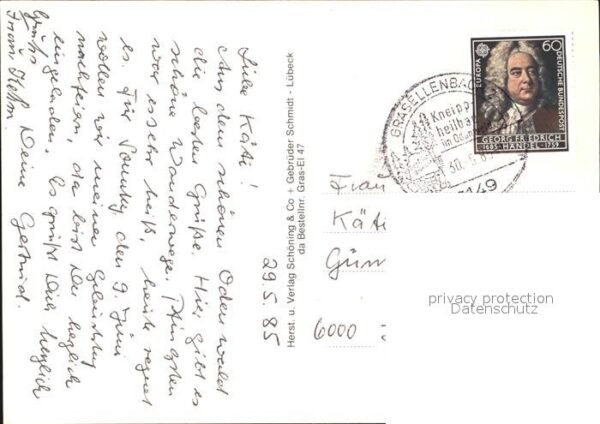 29.5.85
Liebe Käti!
Aus dem schönen Odenwald
die besten Grüße. Hier gibt es
schöne Wanderwege. Pfingsten
war es sehr heiß, heute regnet
es. Für Sonntag den 9. Juni
wollen wir meinen Geburtstag
nachfeiern, da bist Du herzlich
eingeladen. Es grüßt Dich herzlich
Deine Gertrud.
Grüße
Herst. u. Verlag Schöning & Co + Gebrüder Schmidt - Lübeck
da Bestellnr. Gras-El 47
GRASELLENBAC
Kneipp
heilba
im Oden
30.
6149
EUROPA
60
DEUTSCHE BUNDESPOST
GEORG FRIEDRICH
1685 HÄNDEL 1759
Frau
Käti
Gün
6000
privacy protection
Datenschutz